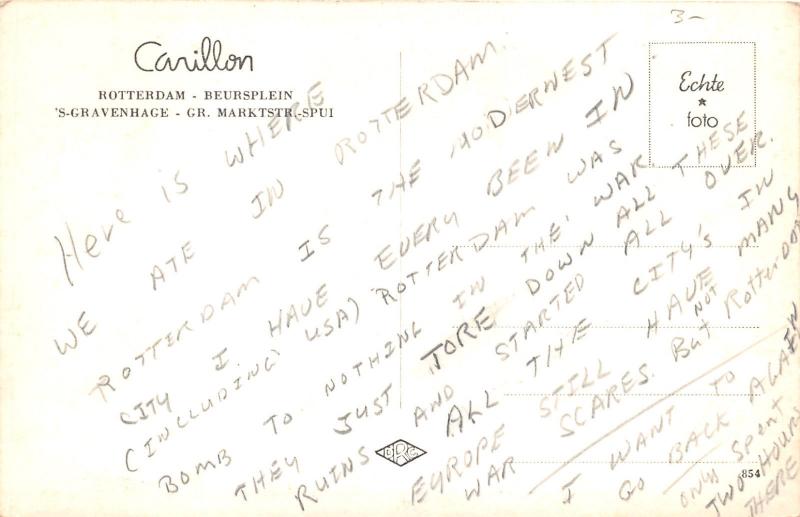 3-
Carillon
ROTTERDAM - BEURSPLEIN
'S-GRAVENHAGE - GR. MARKTSTR.-SPUI
Echte
foto
Here is WHERE
WE ATE IN ROTTERDAM.
ROTTERDAM IS THE MODERNEST
CITY I HAVE EVERY BEEN IN
(INCLUDING USA) ROTTERDAM WAS
BOMB TO NOTHING IN THE WAR
THEY JUST TORE DOWN ALL THESE
RUINS AND STARTED ALL OVER.
ALL THE CITY'S IN
EUROPE STILL HAVE MANY
WAR SCARES. But NOT Rotterdom
I WANT TO
GO BACK AGAIN
ONLY Spent
TWO HOURS
THERE
ORC
854